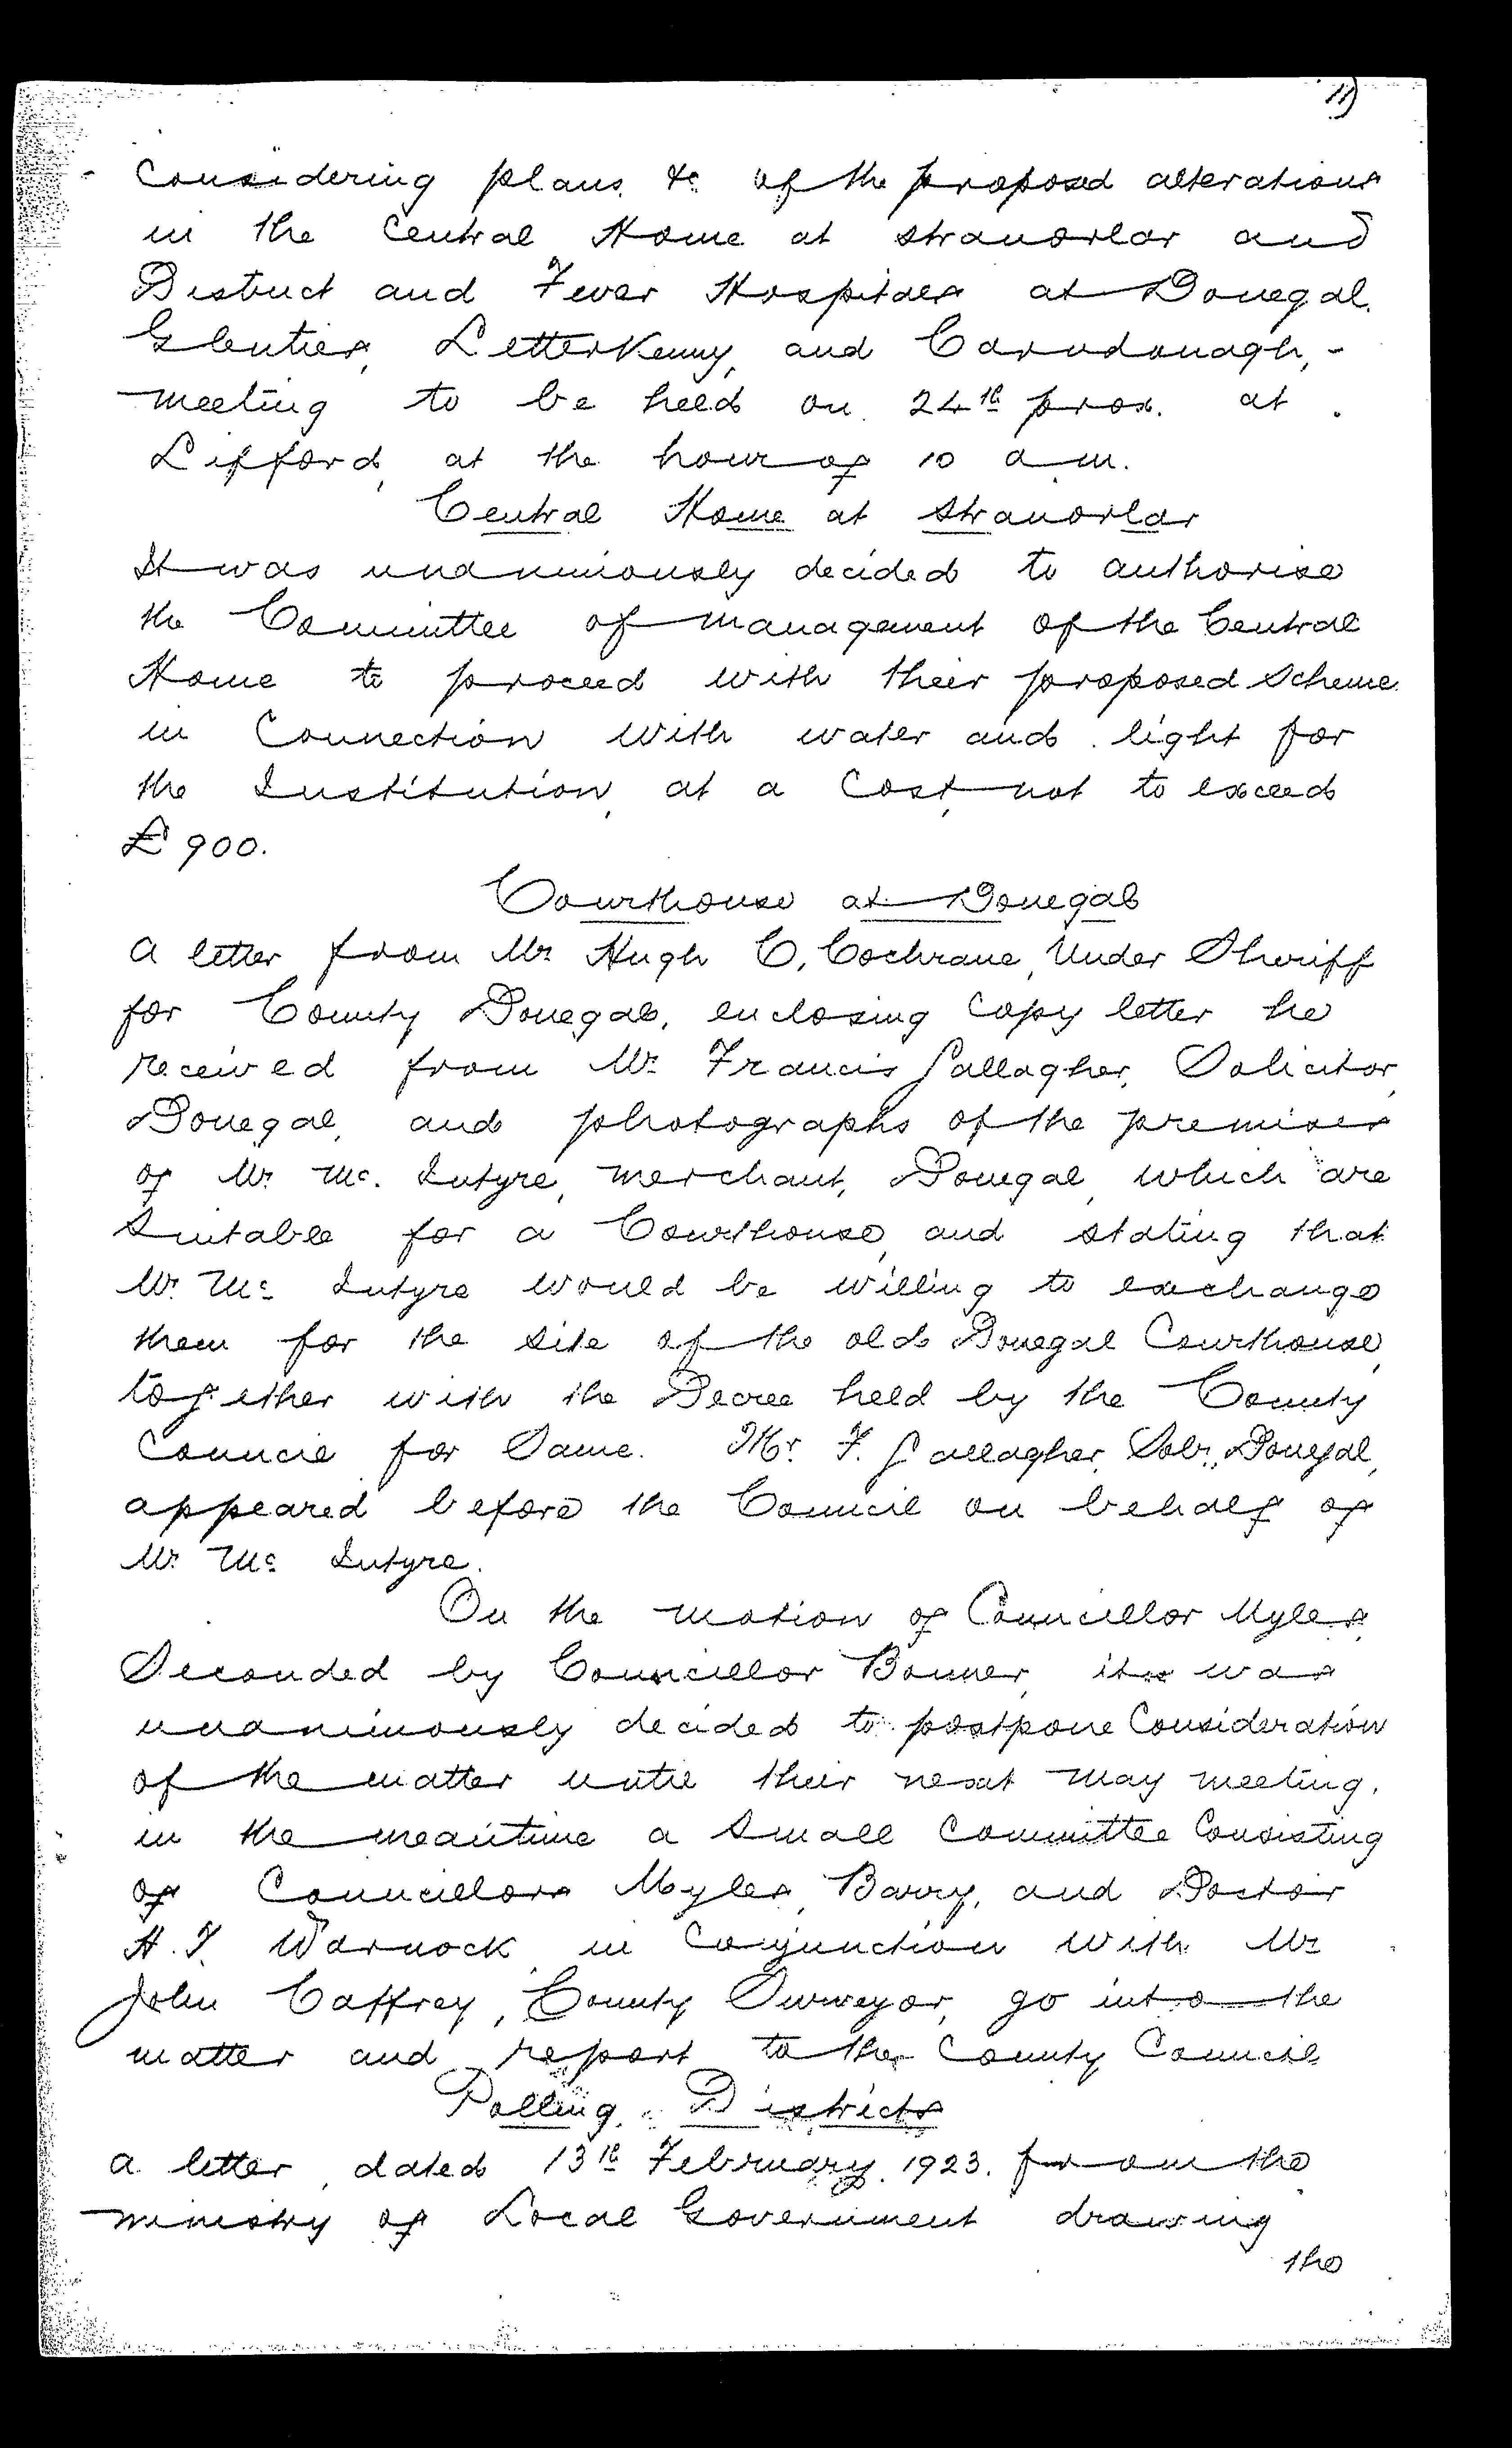 11)
Considering plans &c of the proposed alterations
in the Central Home at Stranorlar and
District and Fever Hospitals at Donegal.
Glenties, Letterkenny, and Carndonagh, -
meeting to be held on 24th prox. at
Lifford, at the hour of 10 a.m.
Central Home at Stranorlar
It was unanimously decided to authorise
the Committee of management of the Central
Home to proceed with their proposed Scheme
in Connection with water and light for
the Institution, at a Cost, not to exceed
£900.
Courthouse at Donegal
A letter from Mr Hugh C. Cochrane, Under Sheriff
for County Donegal, enclosing Copy letter he
received from Mr Francis Gallagher, Solicitor,
Donegal, and photographs of the premises
of Mr Mc. Intyre, merchant, Donegal, which are
Suitable for a Courthouse, and stating that
Mr Mc Intyre would be willing to exchange
them for the site of the old Donegal Courthouse,
together with the Decree held by the County
Council for Same. Mr. F. Gallagher, Solr., Donegal,
appeared before the Council on behalf of
Mr Mc Intyre.
On the motion of Councillor Myles,
Seconded by Councillor Bonner, it was
unanimously decided to postpone Consideration
of the matter until their next May meeting,
in the meantime a Small Committee Consisting
of Councillors Myles, Barry, and Doctor
H. T. Warnock, in Conjunction with Mr
John Caffrey, County Surveyor, go into the
matter and report to the County Council
Polling Districts
A letter, dated 13th February, 1923. from the
ministry of Local Government drawing
the